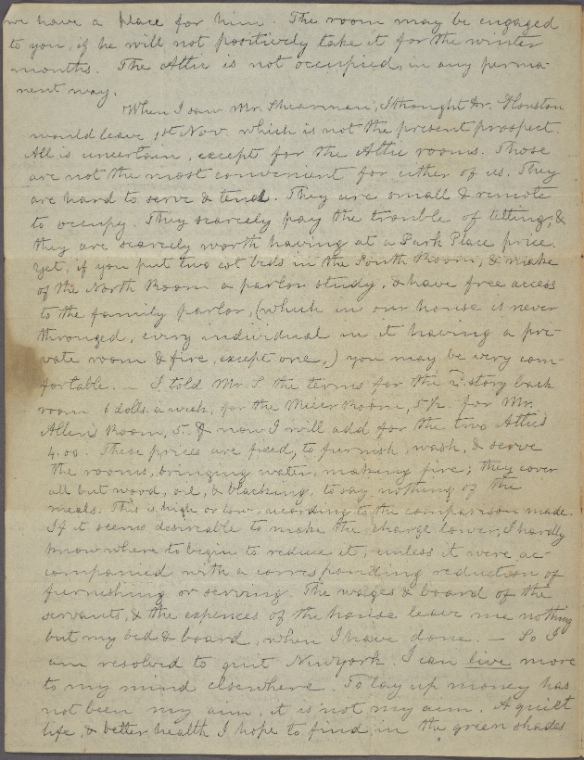 we have a place for him. The room may be engaged
to you, if he will not positively take it for the winter
months. The Attic is not occupied, in any perma-
nent way.
When I saw Mr. Shearman, I thought Dr. Houston
would leave 1st Nov. which is not the present prospect.
All is uncertain, except for the Attic rooms. Those
are not the most convenient for either of us. They
are hard to serve & tend. They are small & remote
to occupy. They scarcely pay the trouble of letting, &
they are scarcely worth having at a Park Place price.
Yet, if you put two cot beds in the South Room, & make
of the North Room a parlor study, & have free access
to the family parlor, (which in our house is never
thronged, every individual in it having a pri-
vate room & fire, except one,) you may be very com-
fortable. – I told Mr. S the terms for the 2d story back
room 6 dolls. a week, for the Room, 5½. for Mr.
Allen's Room, 5. & now I will add for the two Attics
4.00. These prices are fixed, to furnish, wash, & serve
the rooms, bringing water, making fire; they cover
all but wood, oil, & blacking, to say nothing of the
meals. This is high or low, according to the comparison made.
If it seems desirable to make the charge lower, I hardly
know where to begin to reduce it, unless it were ac-
companied with a corresponding reduction of
furnishing or serving. The wages & board of the
servants, & the expences of the house leave me nothing
but my bed & board, when I have done. – So I
am resolved to quit Newyork. I can live more
to my mind elsewhere. To lay up money has
not been my aim, it is not my aim. A quiet
life, & better health I hope to find, in the green shades